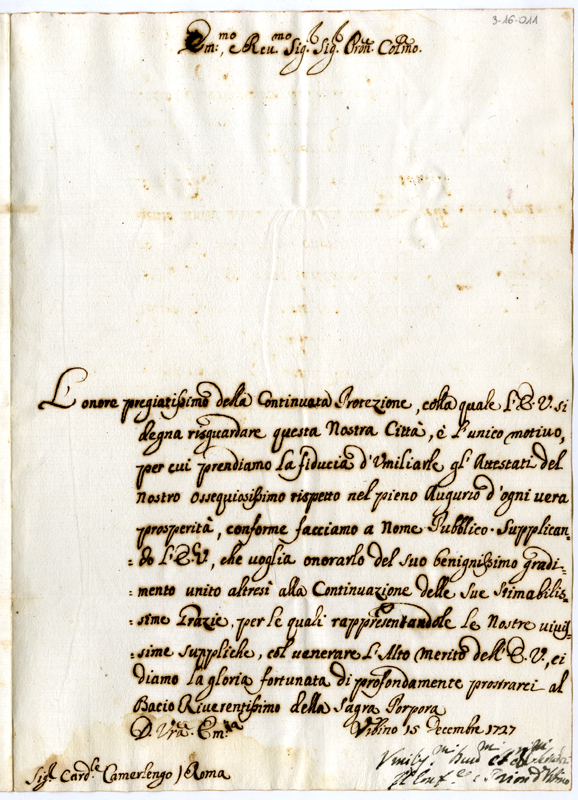 3-16-011
Em:mo, e Reu.mo Sig.r Sig.r Pron Colmo.
L'onore pregiatissimo della Continuata Protezione, colla quale l'E.V. si
degna risguardare questa Nostra Città, è l'unico motivo,
per cui prendiamo la fiducia d'Vmiliarle gl'Attestati del
Nostro ossequiosissimo rispetto nel pieno Augurio d'ogni uera
prosperità, conforme facciamo a Nome Pubblico. Supplican-
=do l'E.V., che uoglia onorarlo del suo benignissimo gradi=
=mento unito altresì alla Continuazione delle Sue Stimabilis=
=sime Grazie, per le quali rappresentandole le Nostre uiuis=
=sime suppliche, col uenerare l'Alto merito dell'E.V., ci
diamo la gloria fortunata di profondamente prostrarci al
Bacio Riuerentissimo della Sagra Porpora
D. Vra. Em:za Vrbino 15 Decembre 1727
Vmiliss.mi
Sig.r Card.le Camerlengo) Roma
Il Conf.re e Priori d'Vrbino